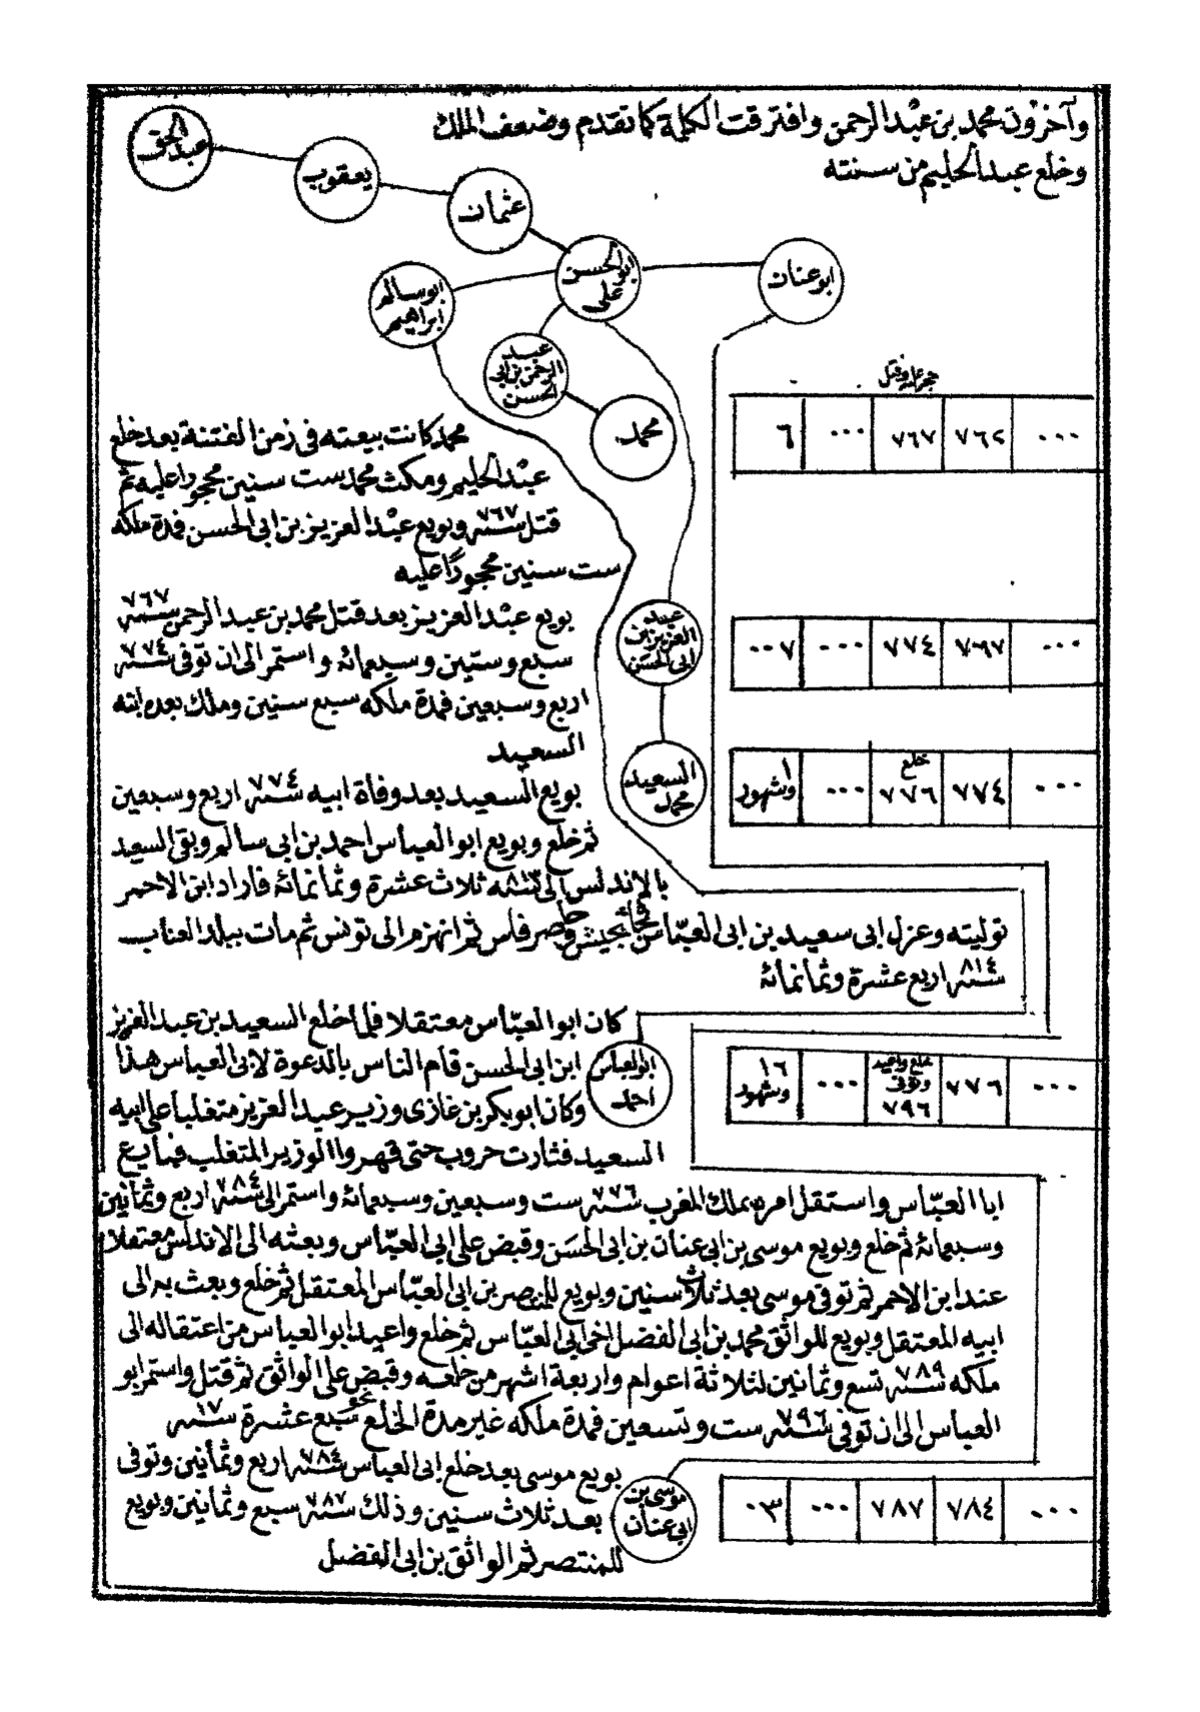 وآخرون محمد بن عبد الرحمن وافترقت الكلمة كما تقدم وضعف الملك
وخلع عبد الحليم من سنته
عبد الحق
يعقوب
عثمان
ابو الحسن
على
ابو عنان
ابو سالم
ابراهيم
عبد
الرحمن بن ابى
الحسن
محمد
وقتل
... ٧٦٢ ٧٦٧ ... ٦
محمد كانت بيعته فى زمن الفتنة بعد خلع
عبد الحليم ومكث محمد ست سنين محجورا عليه ثم
قتل سنة ٧٦٧ وبويع عبد العزيز بن ابى الحسن فمدة ملكه
ست سنين محجورًا عليه
عبد
العزيز بن
ابى الحسن
... ٧٦٧ ٧٧٤ ... ٠٠٧
بويع عبد العزيز بعد قتل محمد بن عبد الرحمن سنة ٧٦٧
سبع وستين وسبعمائة واستمر الى ان توفى سنة ٧٧٤
اربع وسبعين فمدة ملكه سبع سنين وملك بعده ابنه
السعيد
السعيد
محمد
... ٧٧٤ خلع ٧٧٦ ... ١ وشهور
بويع السعيد بعد وفاة ابيه سنة ٧٧٤ اربع وسبعين
ثم خلع وبويع ابو العباس احمد بن ابى سالم وبقى السعيد
بالاندلس الى سنة ٨١٣ ثلاث عشرة وثمانمائة فاراد ابن الاحمر
توليته وعزل ابى سعيد بن ابى العباس فجاء بجيش وحاصر فاس ثم انهزم الى تونس ثم مات ببلد العناب
سنة ٨١٤ اربع عشرة وثمانمائة
ابو العباس
احمد
... ٧٧٦ خلع واعيد وتوفى ٧٩٦ ... ١٦ وشهور
كان ابو العباس معتقلا فلما خلع السعيد بن عبد العزيز
ابن ابى الحسن قام الناس بالدعوة لابى العباس هذا
وكان ابو بكر بن غازى وزير عبد العزيز متغلبا على ابيه
السعيد فثارت حروب حتى قهروا الوزير المتغلب فبايع
ابا العباس واستقل امره بملك المغرب سنة ٧٧٦ ست وسبعين وسبعمائة واستمر الى سنة ٧٨٤ اربع وثمانين
وسبعمائة ثم خلع وبويع موسى بن ابى عنان بن ابى الحسن وقبض على ابى العباس وبعثه الى الاندلس معتقلا
عند ابن الاحمر ثم توفى موسى بعد ثلاث سنين وبويع للمنتصر بن ابى العباس المعتقل ثم خلع وبعث به الى
ابيه المعتقل وبويع للواثق محمد بن ابى الفضل اخى ابى العباس ثم خلع واعيد ابو العباس من اعتقاله الى
ملكه سنة ٧٨٩ تسع وثمانين لثلاثة اعوام واربعة اشهر من خلعه وقبض على الواثق ثم قتل واستمر ابو
العباس الى ان توفى سنة ٧٩٦ ست وتسعين فمدة ملكه غير مدة الخلع نحو سبع عشرة سنة ١٧
موسى بن
ابى عنان
... ٧٨٤ ٧٨٧ ... ٠٣
بويع موسى بعد خلع ابى العباس سنة ٧٨٤ اربع وثمانين وتوفى
بعد ثلاث سنين وذلك سنة ٧٨٧ سبع وثمانين وبويع
للمنتصر ثم الواثق بن ابى الفضل